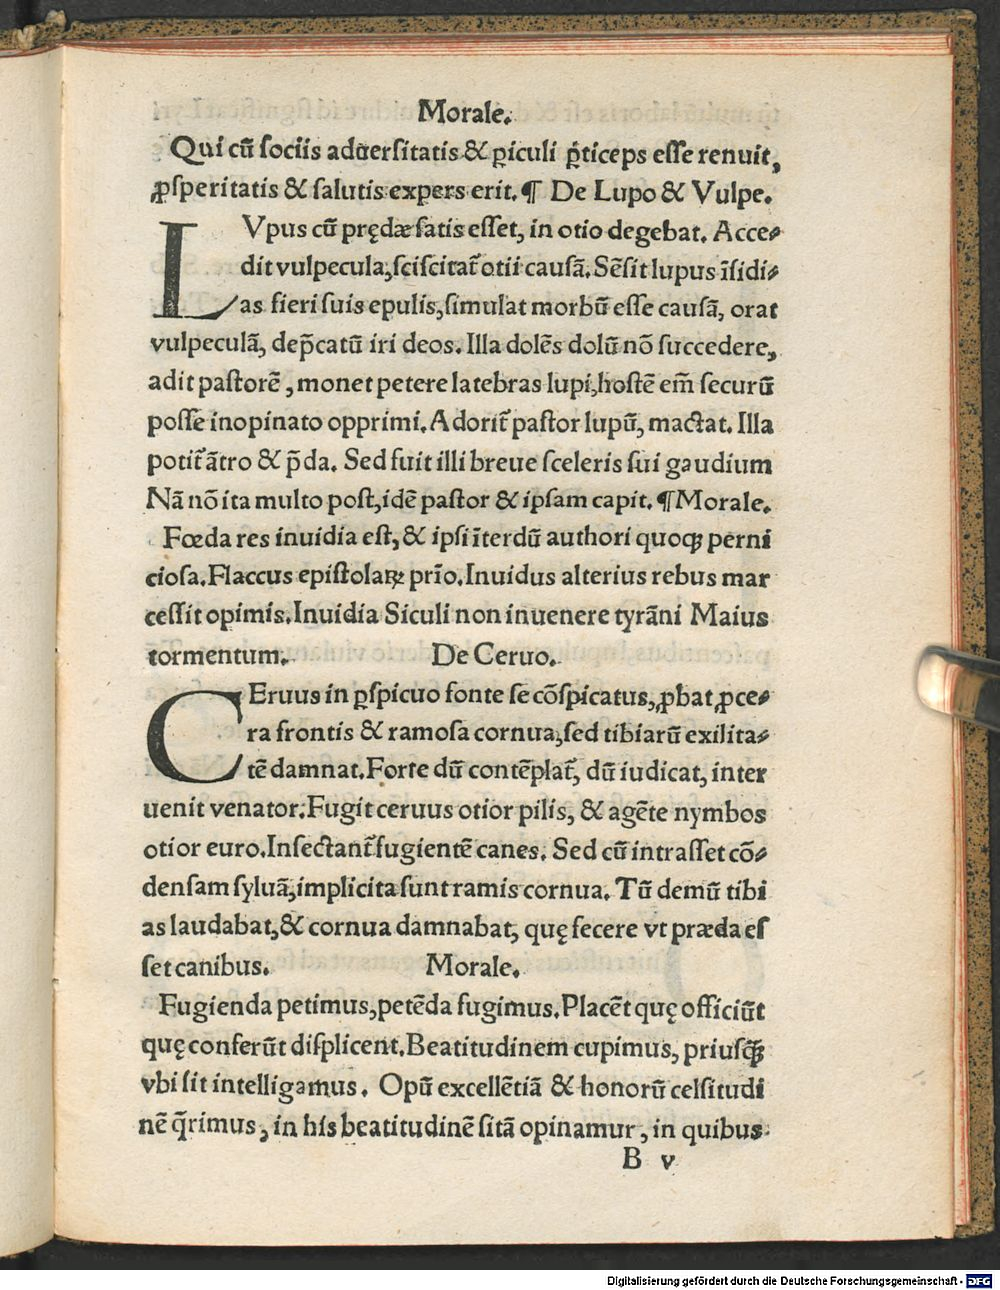 Morale.
Qui cū ſociis aduerſitatis & ꝑiculi ṗticeps eſſe renuit,
ꝓſperitatis & ſalutis expers erit. ¶ De Lupo & Vulpe.
LVpus cū prędæ ſatis eſſet, in otio degebat. Acce⸗
dit vulpecula, ſciſcitat᷑ otii cauſā. Sēſit lupus īſidi⸗
as fieri ſuis epulis, ſimulat morbū eſſe cauſā, orat
vulpeculā, dep̄catū iri deos. Illa dolēs dolū nō ſuccedere,
adit paſtorē, monet petere latebras lupi, hoſtē em̄ ſecurū
poſſe inopinato opprimi. Adorit᷑ paſtor lupū, mactat. Illa
potit᷑ ātro & p̄da. Sed fuit illi breue ſceleris ſui gaudium
Nā nō ita multo poſt, idē paſtor & ipſam capit. ¶ Morale.
Fœda res inuidia eſt, & ipſi īterdū authori quoqꝫ perni
cioſa. Flaccus epiſtolaꝝ prīo. Inuidus alterius rebus mar
ceſſit opimis. Inuidia Siculi non inuenere tyrāni Maius
tormentum. De Ceruo.
CEruus in ꝑſpicuo fonte ſe cōſpicatus, ꝓbat ꝓce⸗
ra frontis & ramoſa cornua, ſed tibiarū exilita⸗
tē damnat. Forte dū contēplat᷑, dū iudicat, inter
uenit venator. Fugit ceruus otior pilis, & agēte nymbos
otior euro. Inſectant᷑ fugientē canes. Sed cū intraſſet cō⸗
denſam ſyluā, implicita ſunt ramis cornua. Tū demū tibi
as laudabat, & cornua damnabat, quę fecere vt præda eſ
ſet canibus. Morale.
Fugienda petimus, petēda fugimus. Placēt quę officiūt
quę conferūt diſplicent. Beatitudinem cupimus, priuſꝗꝫ
vbi ſit intelligamus. Opū excellētiā & honorū celſitudi
nē q̄rimus, in his beatitudinē ſitā opinamur, in quibus
B v
Digitalisierung gefördert durch die Deutsche Forschungsgemeinschaft - DFG